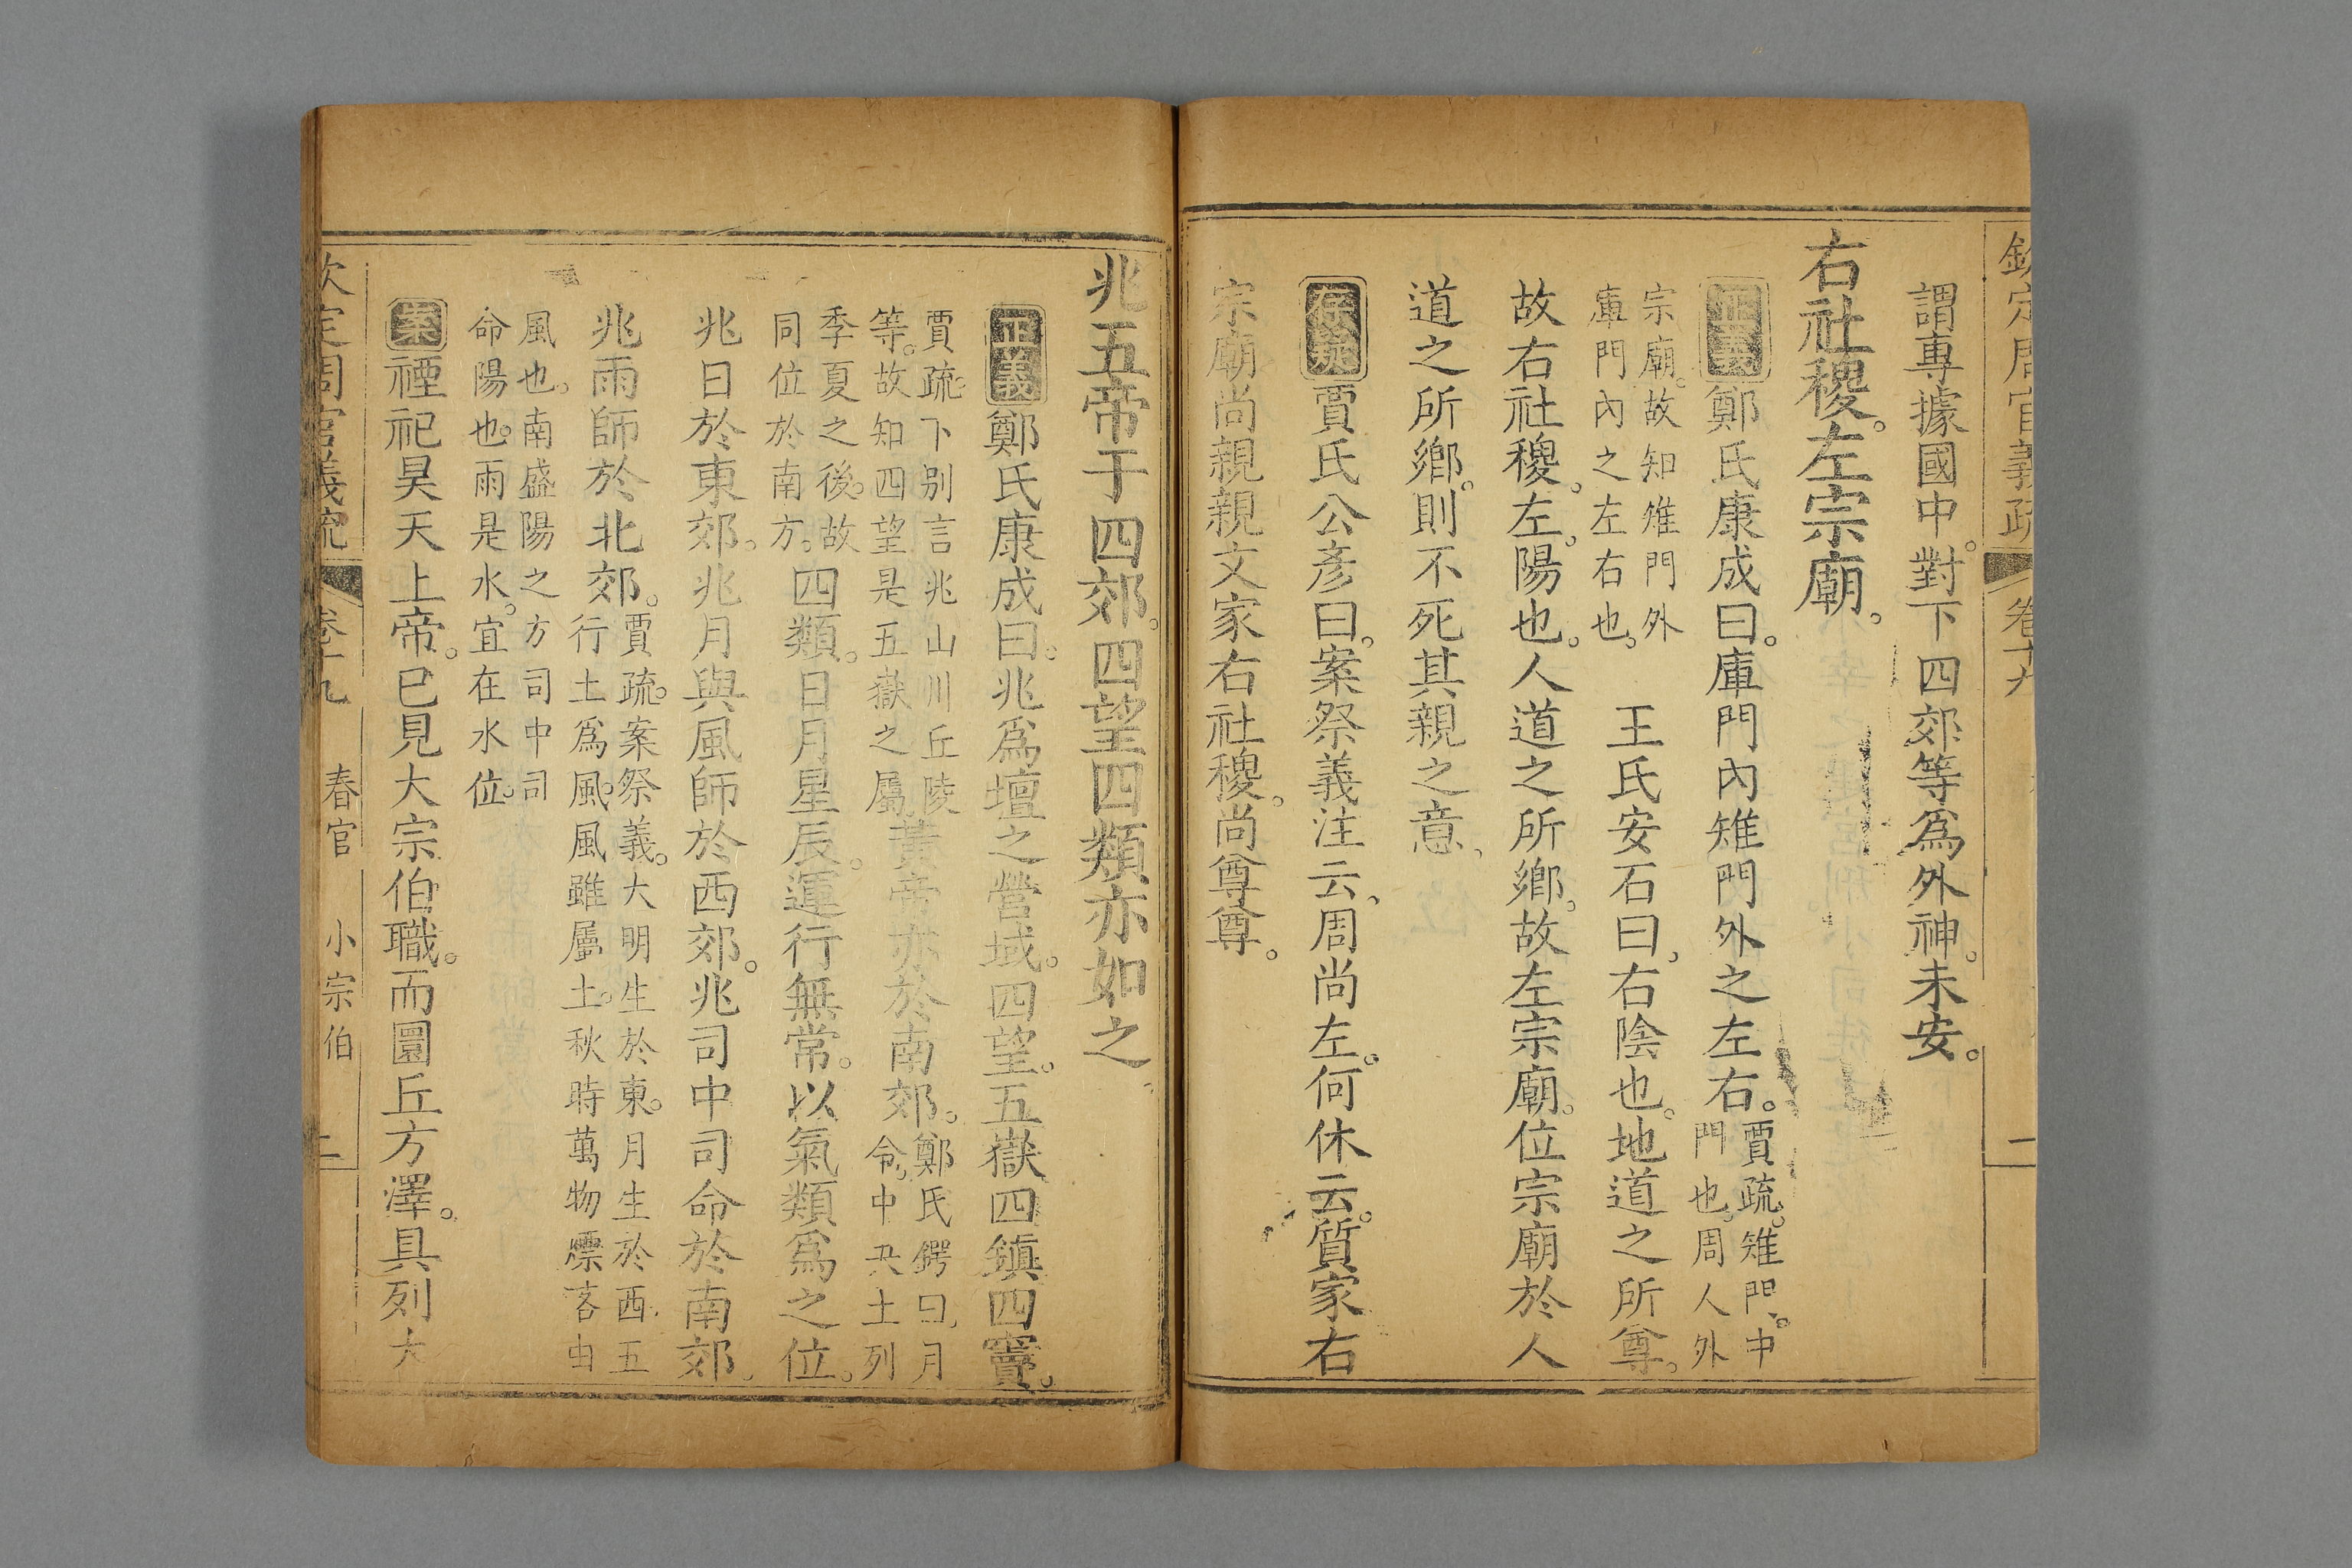 欽定周官義疏 卷十九 二
謂專據國中。對下四郊等爲外神。未安。
右社稷。左宗廟。
正義 鄭氏康成曰。庫門內雉門外之左右。賈疏。雉門、中
門也。周人外
宗廟。故知雉門外
庫門內之左右也。 王氏安石曰、右陰也。地道之所尊。
故右社稷。左陽也。人道之所鄉。故左宗廟。位宗廟於人
道之所鄉。則不死其親之意、
存疑 賈氏公彥曰。案祭義注云、周尚左。何休云。質家右
宗廟尚親親文家右社稷。尚尊尊。
兆五帝于四郊。四望四類亦如之、
正義 鄭氏康成曰。兆爲壇之營域。四望。五嶽四鎮四竇。
賈疏。下別言兆山川丘陵
等。故知四望是五嶽之屬。黃帝亦於南郊。鄭氏鍔曰、月
令、中央土列
季夏之後。故
同位於南方。四類。日月星辰。運行無常。以氣類爲之位。
兆日於東郊。兆月與風師於西郊。兆司中司命於南郊。
兆雨師於北郊。賈疏。案祭義。大明生於東。月生於西五
行土爲風。風雖屬土。秋時萬物燻落由
風也。南盛陽之方司中司
命陽也。雨是水。宜在水位。
案 禋祀昊天上帝。已見大宗伯職。而圜丘方澤。具列大
欽定周官義疏 卷十九 春官 小宗伯 二